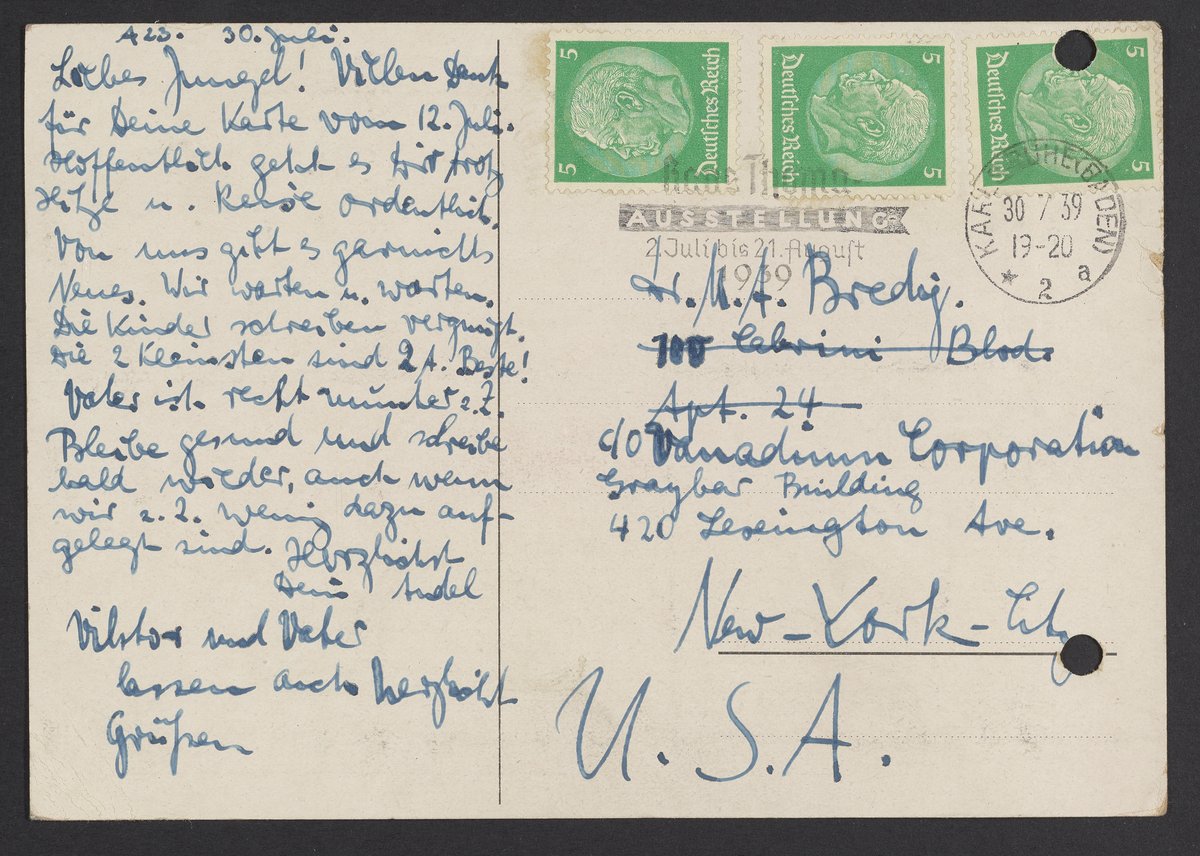 A23. 30. Juli.
Liebes Jungel! Vielen Dank
für Deine Karte vom 12. Juli.
Hoffentlich geht es Dir trotz
Hitze u. Reise ordentlich.
Von uns gibt es garnichts
Neues. Wir warten u. warten.
Die Kinder schreiben vergnügt.
Die 2 Kleinsten sind 2 t. Beste!
Vater ist recht munter z. Z.
Bleibe gesund und schreibe
bald wieder, auch wenn
wir z. Z. wenig dazu auf-
gelegt sind. Herzlichst
Dein
Viktor und Vater
lassen auch herzlichst
Grüßen
5 5 Deutsches Reich
Deutsches Reich 5 5
Deutsches Reich 5 5
Hans Thoma-
AUSSTELLUNG
2. Juli bis 21. August
1939
KARLSRUHE (BADEN)
30 7 39
19-20
* 2 a
Dr. M. A. Bredig.
100 Cabrini Blvd.
Apt. 24
c/o Vanadium Corporation
Graybar Building
420 Lexington Ave.
New-York-City
U.S.A.